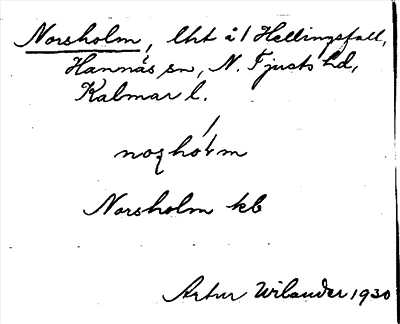 Norsholm, lht å/ Hellingsfall,
Hannäs sn, N. Tjusts hd,
Kalmar l.
Norsholm kb
Artur Wilander 1930